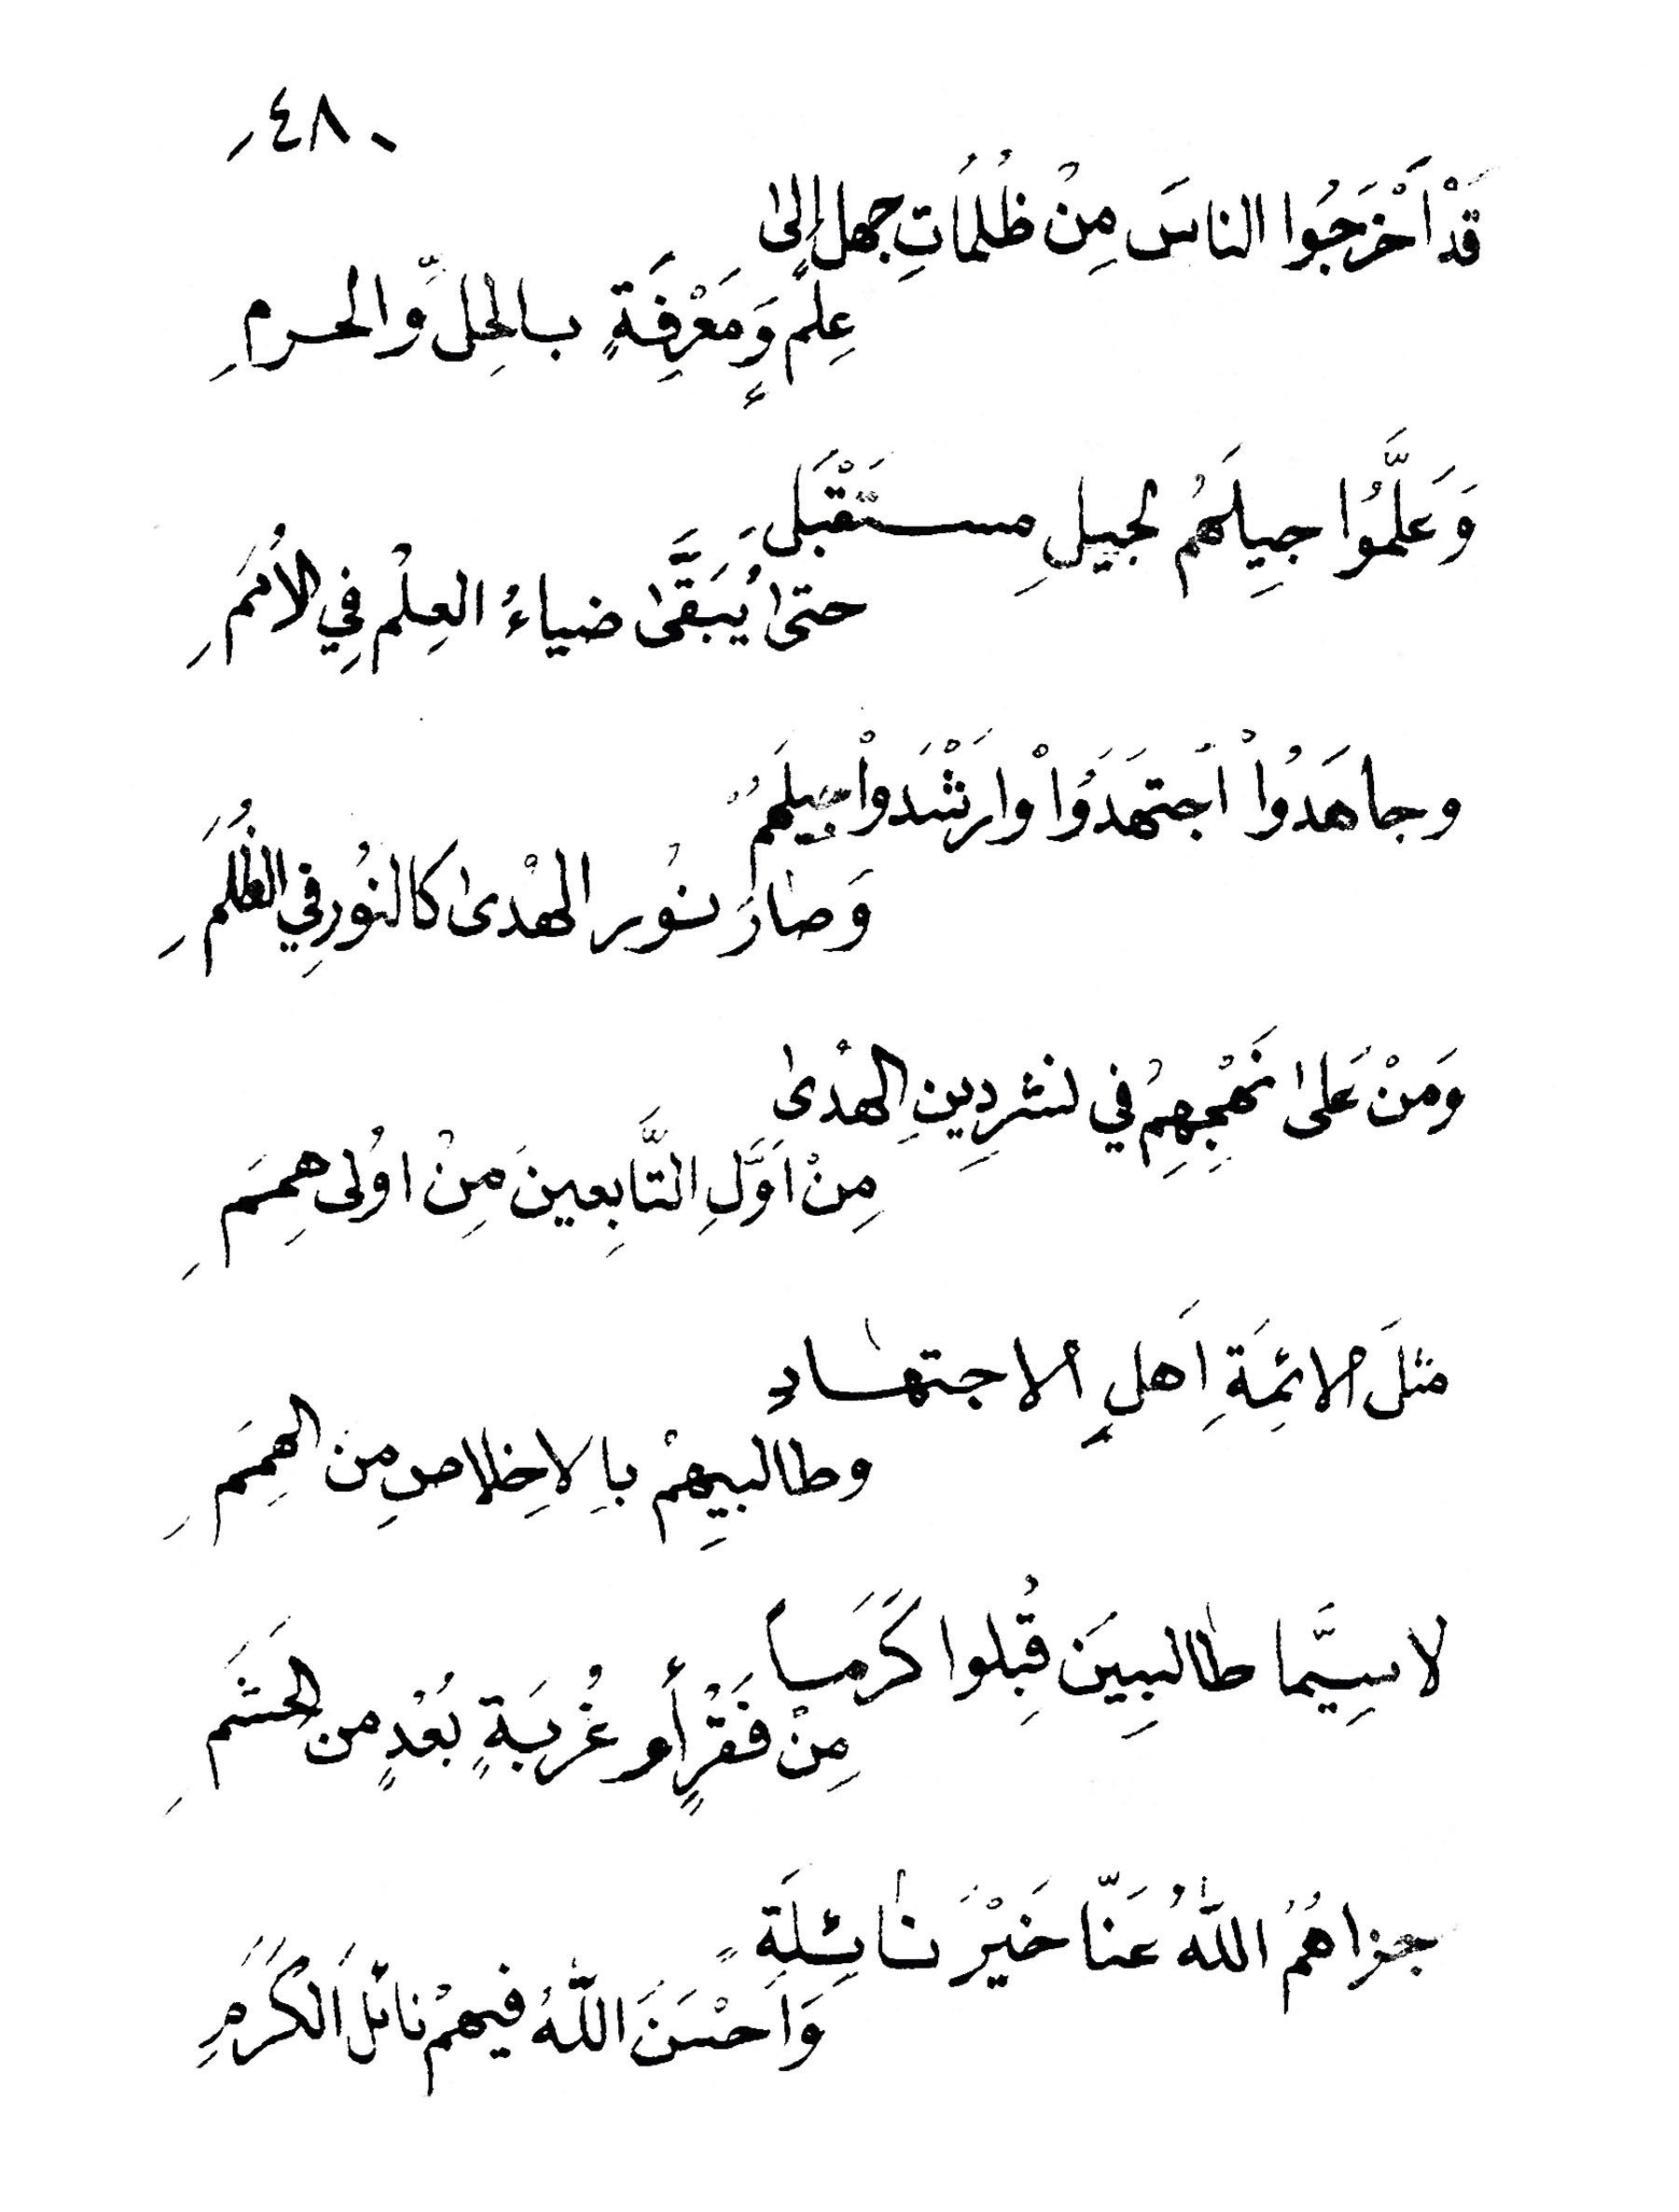 ٤٨٠
قَدْ أَخْرَجُوا الناسَ مِنْ ظُلُمَاتِ جهلٍ إلى
عِلمٍ وَمَعْرِفَةٍ بالحِلِّ والحرمِ
وَعَلَّمُوا جِيلَهُمُ لجيلِ مستَقْبَلَ
حتى يُبَقَّى ضياءُ العِلْمِ فِي الأُمَمِ
وجاهَدُواْ اَجتَهَدَوُاْ وارَشْدَواْ جِيلَهُمُ
وَصارَ نُور الهُدى كالنُورِ في الظُلَمِ
وَمَنْ عَلى نَهْجِهِمْ في نشر دِينِ الهُدى
مِنْ اَوَّلِ التَّابِعينَ مِنْ اوُلى هِمَمِ
مثلَ الائِمَةِ اَهلِ الاجتهادِ
وطالبيِهِمْ باِلاِخلاصِ مِنَ الهِمَمِ
لاسِيَّما طالبِيِنَ قُبِلوا كَرَماً
مِنْ فَقْرٍ أو غُربَةٍ بُعْدٍ من الحَشَمِ
جزاهُمُ اللّٰهُ عَنّا خَيْرَ نائِلَةٍ
وَاَحْسَنَ اللّٰهُ فيهمْ نائلَ الكَرَمِ